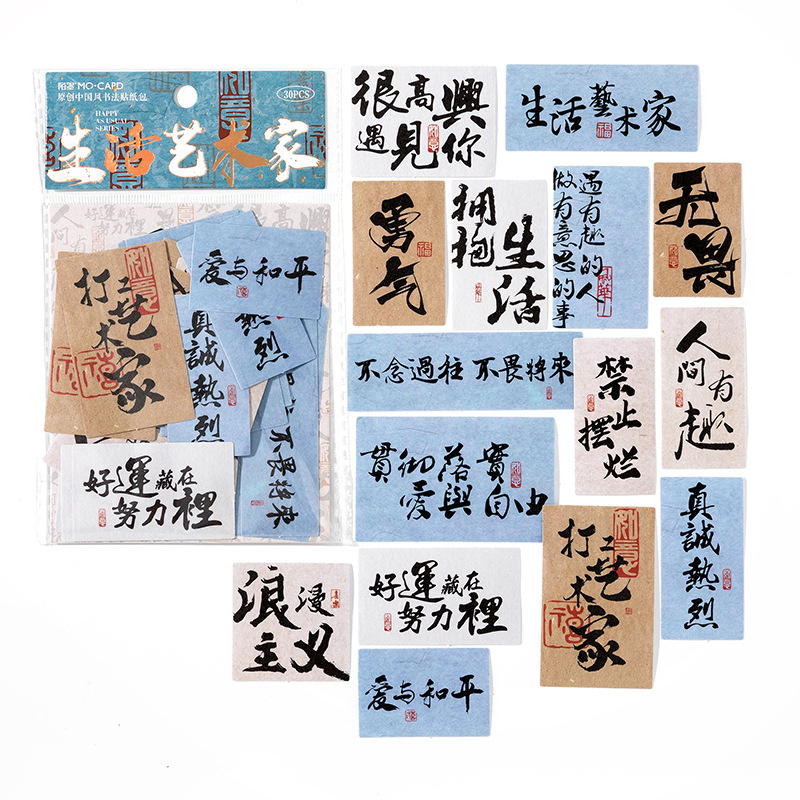 陌墨 MO·CARD
原创中国风书法贴纸包
HAPPY
AS USUAL
SERIES
30PCS
生活艺术家
爱与和平
打工艺
术家
如意
真誠熱烈
熱烈
不畏將來
好運藏在
努力裡
很高興
遇見你
生活藝术家
福
勇气
福
拥抱
生活
遇有趣的人
做有意思的事
无畏
不念過往 不畏將來
禁止
摆烂
人间有趣
貫彻落實
愛與自由
打工艺
术家
如意
真誠熱烈
浪漫
主义
好運藏在
努力裡
爱与和平